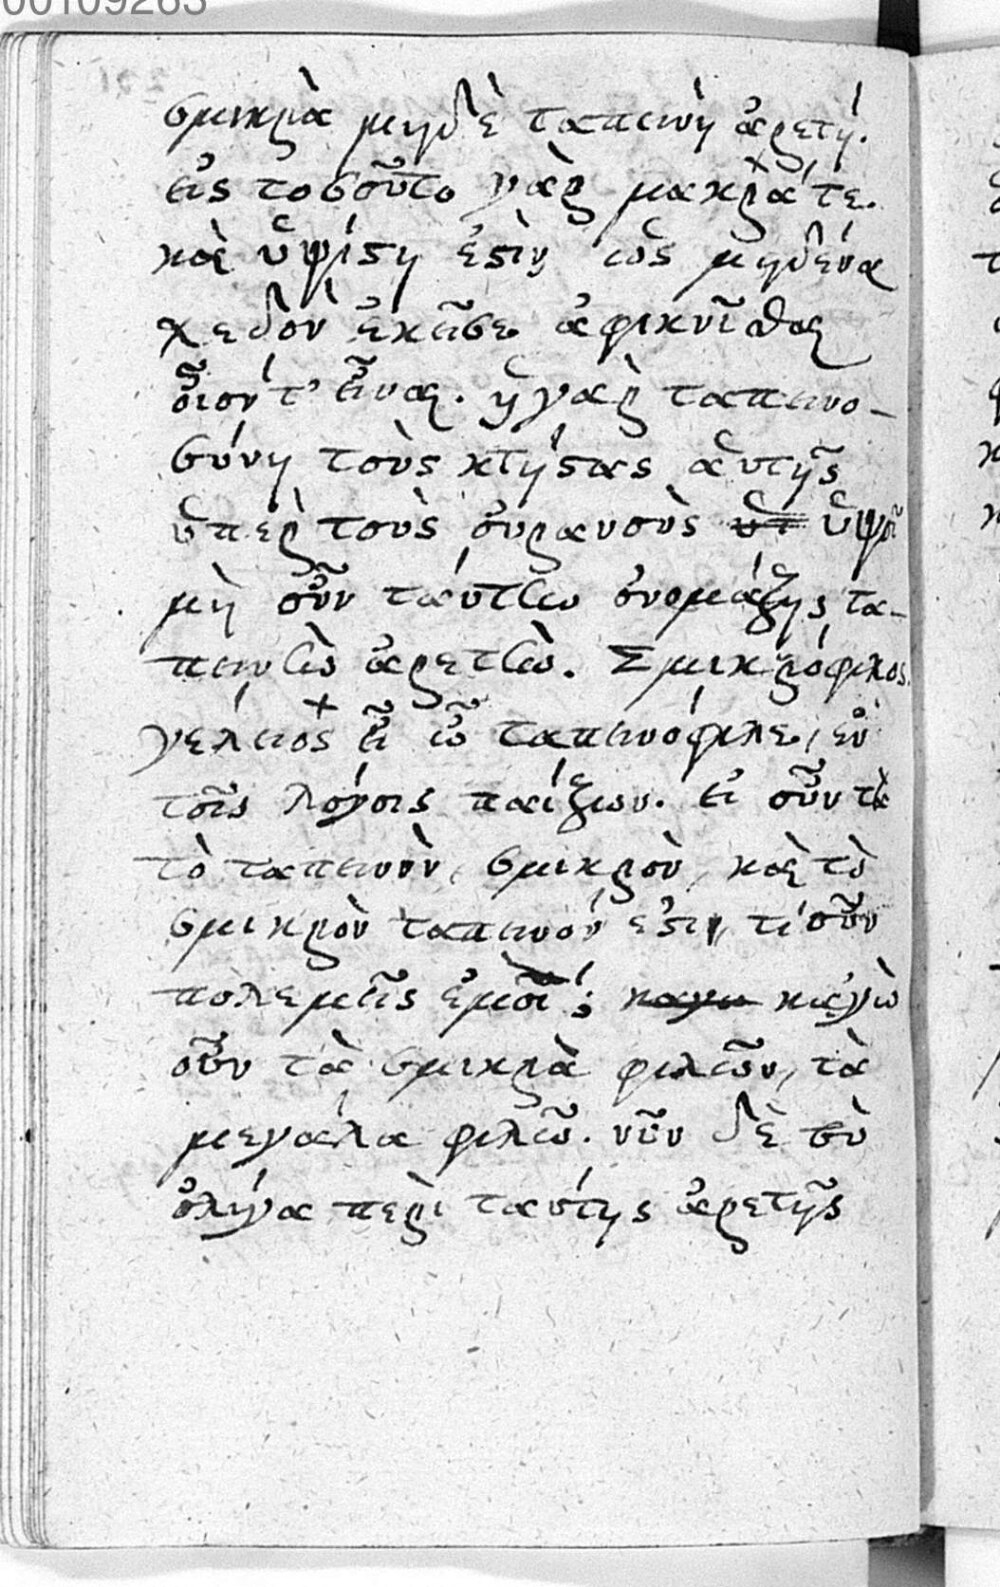 00109263
σμικρὰ μηδὲ ταπεινὴ ἀρετή.
εἰς τοσοῦτο γὰρ μακρά τε
καὶ ὑψίστη ἐστὶν ὡς μηδένα
χεδὸν ἐκεῖσε ἀφικνῖσθαι
οἷον τ' εἶναι. ἡ γὰρ ταπεινο-
σύνη τοὺς κτήστας αὐτῆς
ὑπὲρ τοὺς οὐρανοὺς ὑψοῖ
μὴ οὖν ταύτην ὀνομάζῃς τα-
πεινὴν ἀρετὴν. Σμικρόφιλος
γελεῖος εἶ ὦ ταπεινόφιλε, ἐν
τοῖς λόγοις παίζων. εἰ οὖν
τὸ ταπεινὸν, σμικρὸν, καὶ τὸ
σμικρὸν ταπεινόν ἐστι, τί οὖν
πολεμεῖς ἐμοί; κἀγὼ
οὖν τὰ σμικρὰ φιλῶν, τὰ
μεγάλα φιλῶ. νῦν δὲ σὺ
ὀλίγα περὶ ταύτης ἀρετῆς